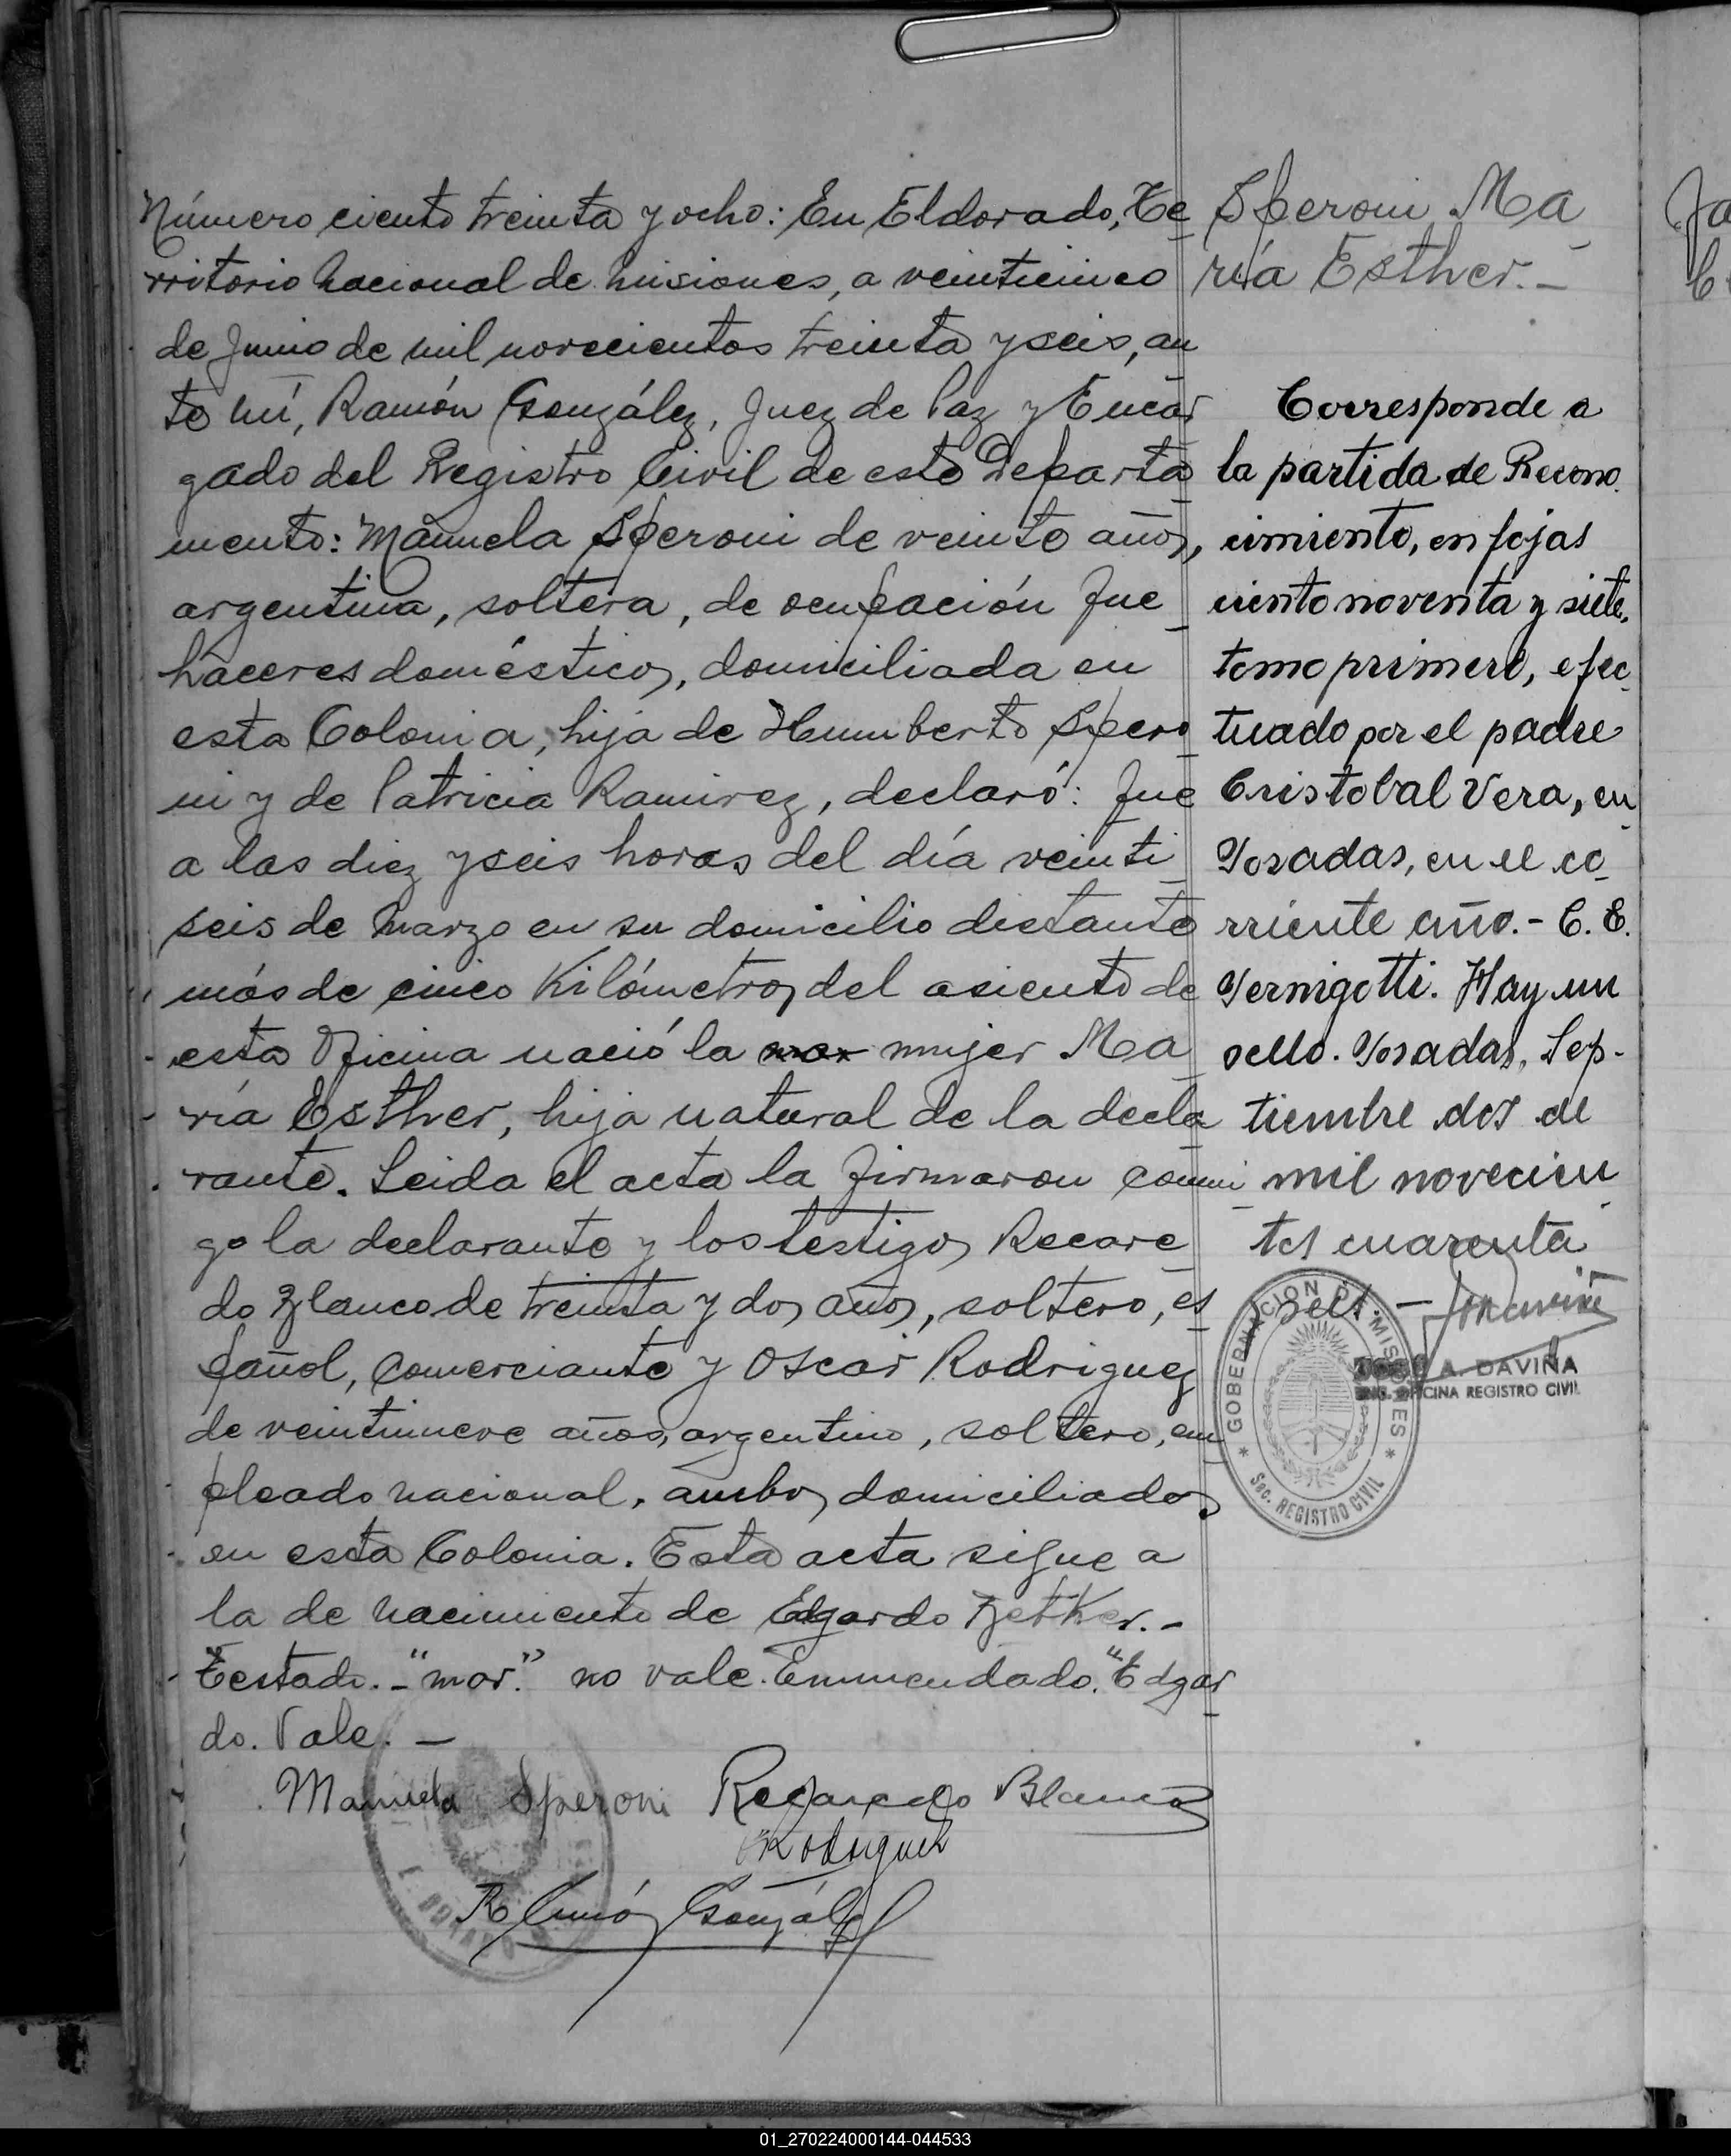 Número ciento treinta y ocho: En Eldorado, Te
rritorio nacional de Misiones, a veinticinco
de Junio de mil novecientos treinta y seis, an
te mí, Ramón González, Juez de Paz y Encar
gado del Registro Civil de este Departa
mento: Manuela Speroni de veinte años,
argentina, soltera, de ocupación que
haceres domésticos, domiciliada en
esta Colonia, hija de Humberto Spero
ni y de Patricia Ramirez, declaró: Que
a las diez y seis horas del día veinti
seis de Marzo en su domicilio distante
más de cinco Kilómetros del asiento de
esta Oficina nació la mor mujer Ma
ría Esther, hija natural de la decla
rante. Leida el acta la firmaron conmi
go la declarante y los testigos Recare
do Blanco de treinta y dos años, soltero, es
pañol, comerciante y Oscar Rodriguez
de veintinueve años, argentino, soltero, em
pleado nacional, ambos domiciliados
en esta Colonia. Esta acta sigue a
la de nacimiento de Edgardo Betker.-
Testado.- "mor." no vale. Enmendado. "Edgar
do. Vale. -
Manuela Speroni Recaredo Blanco
Rodriguez
Ramón González
Speroni Ma
ría Esther.-
Corresponde a
la partida de Recono
cimiento, en fojas
ciento noventa y siete,
tomo primero, efec
tuado por el padre
Cristobal Vera, en
Posadas, en el co
rriente año.- C. E.
Pernigotti. Hay un
sello. Posadas, Sep-
tiembre dos de
mil novecien
tos cuarenta
GOBERNACION DE MISIONES
Sec. REGISTRO CIVIL
JOSE A. DAVIÑA
ENC. OFICINA REGISTRO CIVIL
01_270224000144-044533